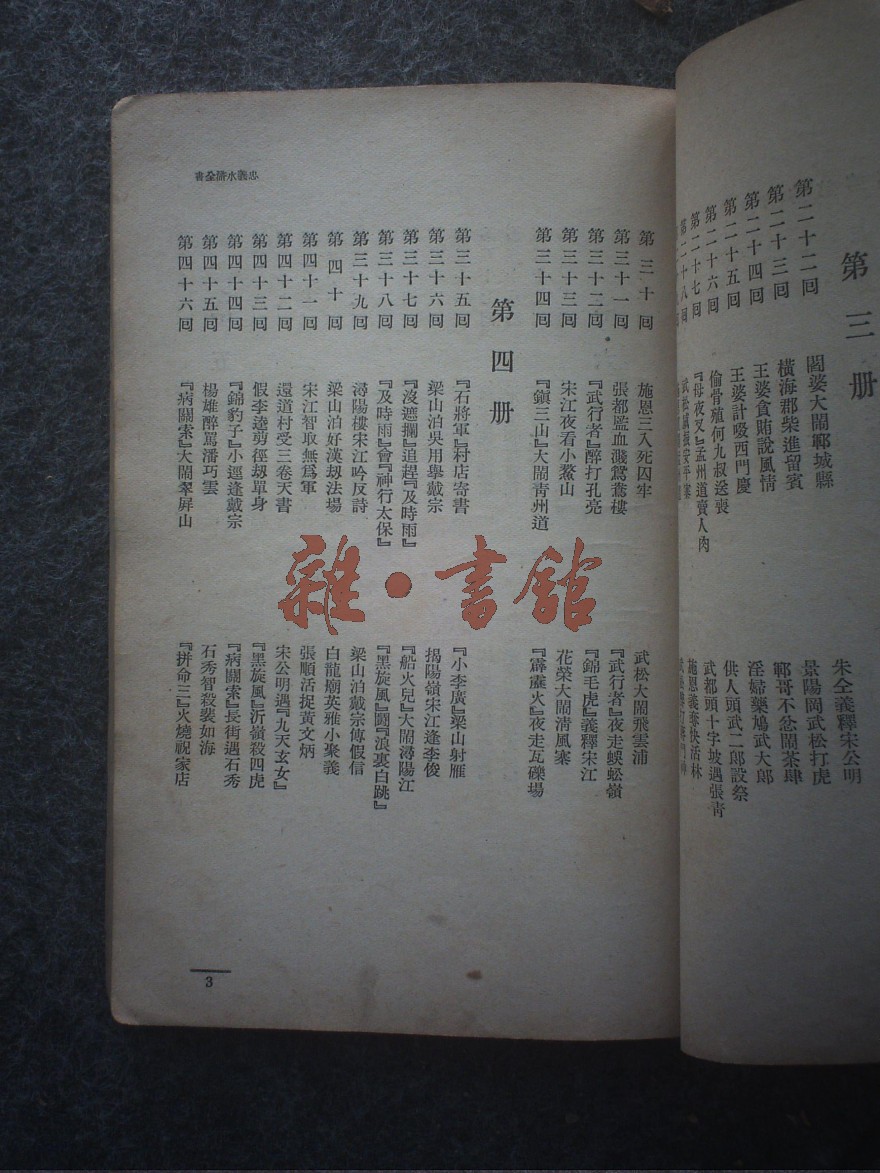 第三册
第二十二回 閻婆大鬧鄆城縣 朱仝義釋宋公明
第二十三回 橫海郡柴進留賓 景陽岡武松打虎
第二十四回 王婆貪賄說風情 鄆哥不忿鬧茶肆
第二十五回 王婆計啜西門慶 淫婦藥鴆武大郎
第二十六回 偷骨殖何九叔送喪 供人頭武二郎設祭
第二十七回 『母夜叉』孟州道賣人肉 武都頭十字坡遇張青
第二十八回 武松威振安平寨 施恩義奪快活林
忠義水滸全書
第三十回 施恩三入死囚牢 武松大鬧飛雲浦
第三十一回 張都監血濺鴛鴦樓 『武行者』夜走蜈蚣嶺
第三十二回 『武行者』醉打孔亮 『錦毛虎』義釋宋江
第三十三回 宋江夜看小鰲山 花榮大鬧清風寨
第三十四回 『鎮三山』大鬧青州道 『霹靂火』夜走瓦礫場
第四册
第三十五回 『石將軍』村店寄書 『小李廣』梁山射雁
第三十六回 梁山泊吳用舉戴宗 揭陽嶺宋江逢李俊
第三十七回 『沒遮攔』追趕『及時雨』 『船火兒』大鬧潯陽江
第三十八回 『及時雨』會『神行太保』 『黑旋風』鬪『浪裏白跳』
第三十九回 潯陽樓宋江吟反詩 梁山泊戴宗傳假信
第四十回 梁山泊好漢刼法場 白龍廟英雄小聚義
第四十一回 宋江智取無爲軍 張順活捉黃文炳
第四十二回 還道村受三卷天書 宋公明遇『九天玄女』
第四十三回 假李逵剪徑刼單身 『黑旋風』沂嶺殺四虎
第四十四回 『錦豹子』小逕逢戴宗 『病關索』長街遇石秀
第四十五回 楊雄醉罵潘巧雲 石秀智殺裴如海
第四十六回 『病關索』大鬧翠屏山 『拼命三』火燒祝家店
3
雜·書館